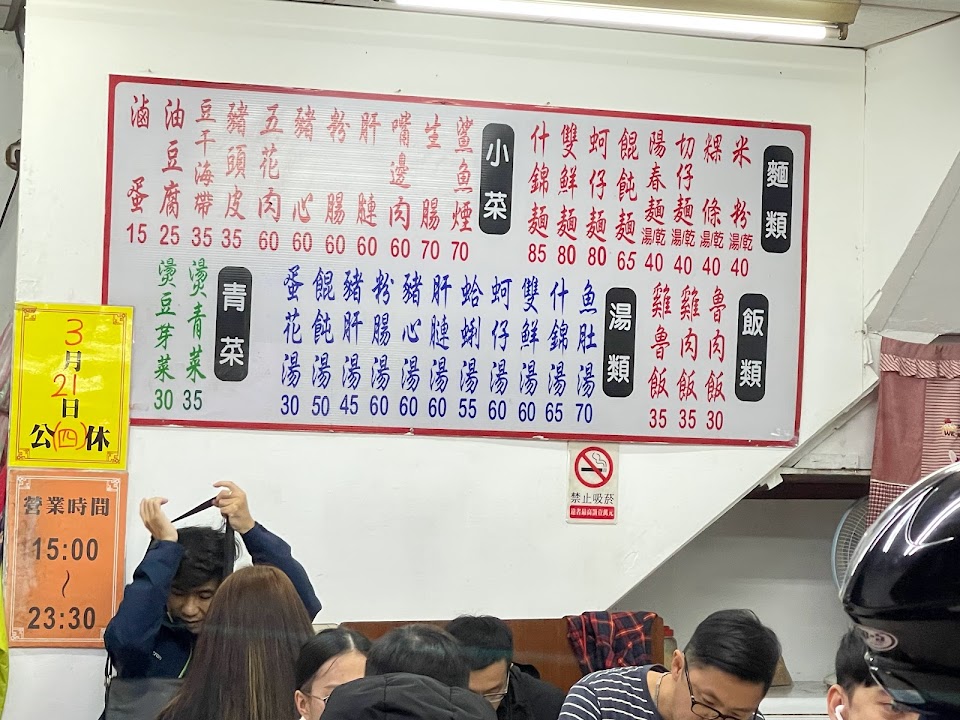 麵類
米粉 湯/乾 40
粿條 湯/乾 40
切仔麵 湯/乾 40
陽春麵 湯/乾 40
餛飩麵 65
蚵仔麵 80
雙鮮麵 80
什錦麵 85
小菜
鯊魚煙 70
生腸 70
嘴邊肉 60
肝膁 60
粉腸 60
豬心 60
五花肉 60
豬頭皮 35
豆干海帶 35
油豆腐 25
滷蛋 15
飯類
魯肉飯 30
雞肉飯 35
雞魯飯 35
湯類
魚肚湯 70
什錦湯 65
雙鮮湯 60
蚵仔湯 60
蛤蜊湯 55
肝膁湯 60
豬心湯 60
粉腸湯 60
豬肝湯 45
餛飩湯 50
蛋花湯 30
青菜
燙青菜 35
燙豆芽菜 30
3
月
21
日
公(四)休
營業時間
15:00
~
23:30
禁止吸菸